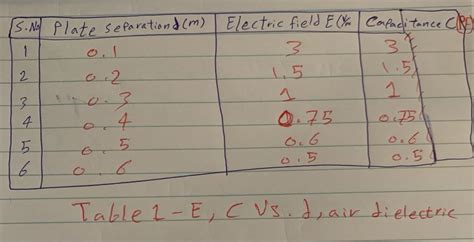 S.No Plate separation d (m) Electric field E (V/m Capacitance C (PF)
1 0.1 3 3
2 0.2 1.5 1.5
3 0.3 1 1
4 0.4 0.75 0.75
5 0.5 0.6 0.6
6 0.6 0.5 0.5
Table 1 - E, C Vs. d, air dielectric